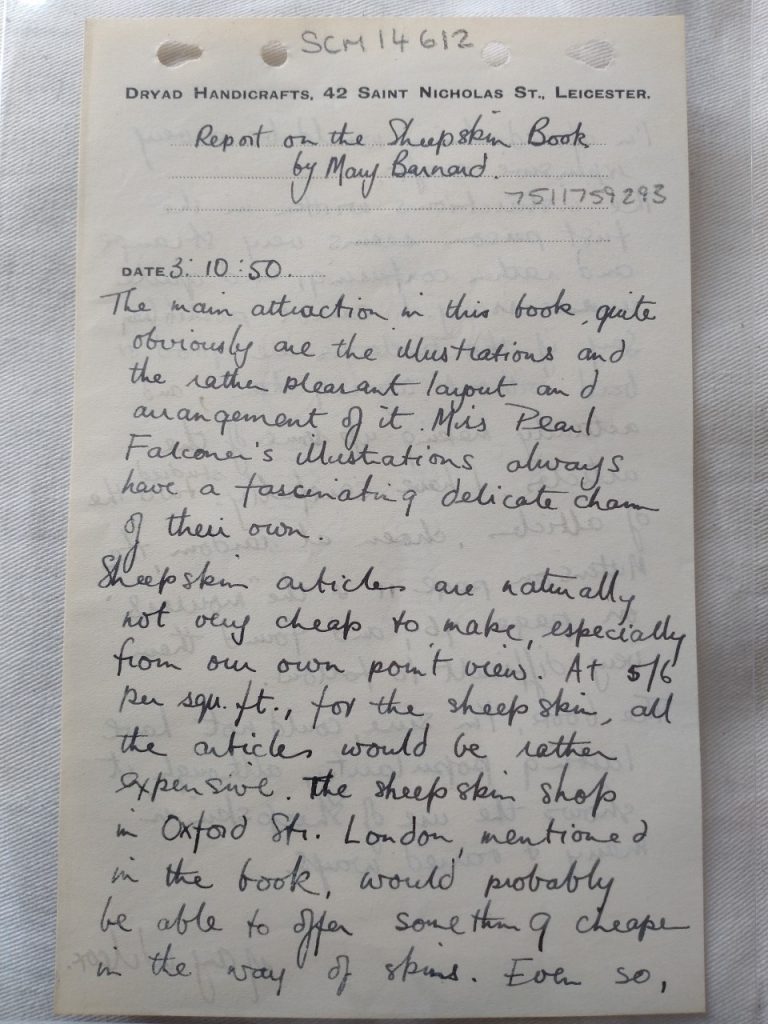 SCM 14612
DRYAD HANDICRAFTS, 42 SAINT NICHOLAS ST., LEICESTER.
Report on the Sheepskin Book
by Mary Barnard.
7511759293
DATE 3: 10:50.
The main attraction in this book, quite
obviously are the illustrations and
the rather pleasant layout and
arrangement of it. Miss Pearl
Falconer's illustrations always
have a fascinating delicate charm
of their own.
Sheepskin articles are naturally
not very cheap to make, especially
from our own point view. At 5/6
per squ. ft., for the sheepskin, all
the articles would be rather
expensive. The sheepskin shop
in Oxford Str. London, mentioned
in the book, would probably
be able to offer something cheaper
in the way of skins. Even so,